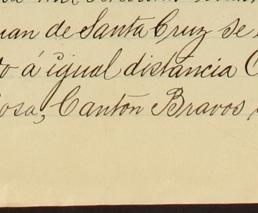 uan de Santa Cruz se
o á igual distancia C
osa, Cantón Bravos